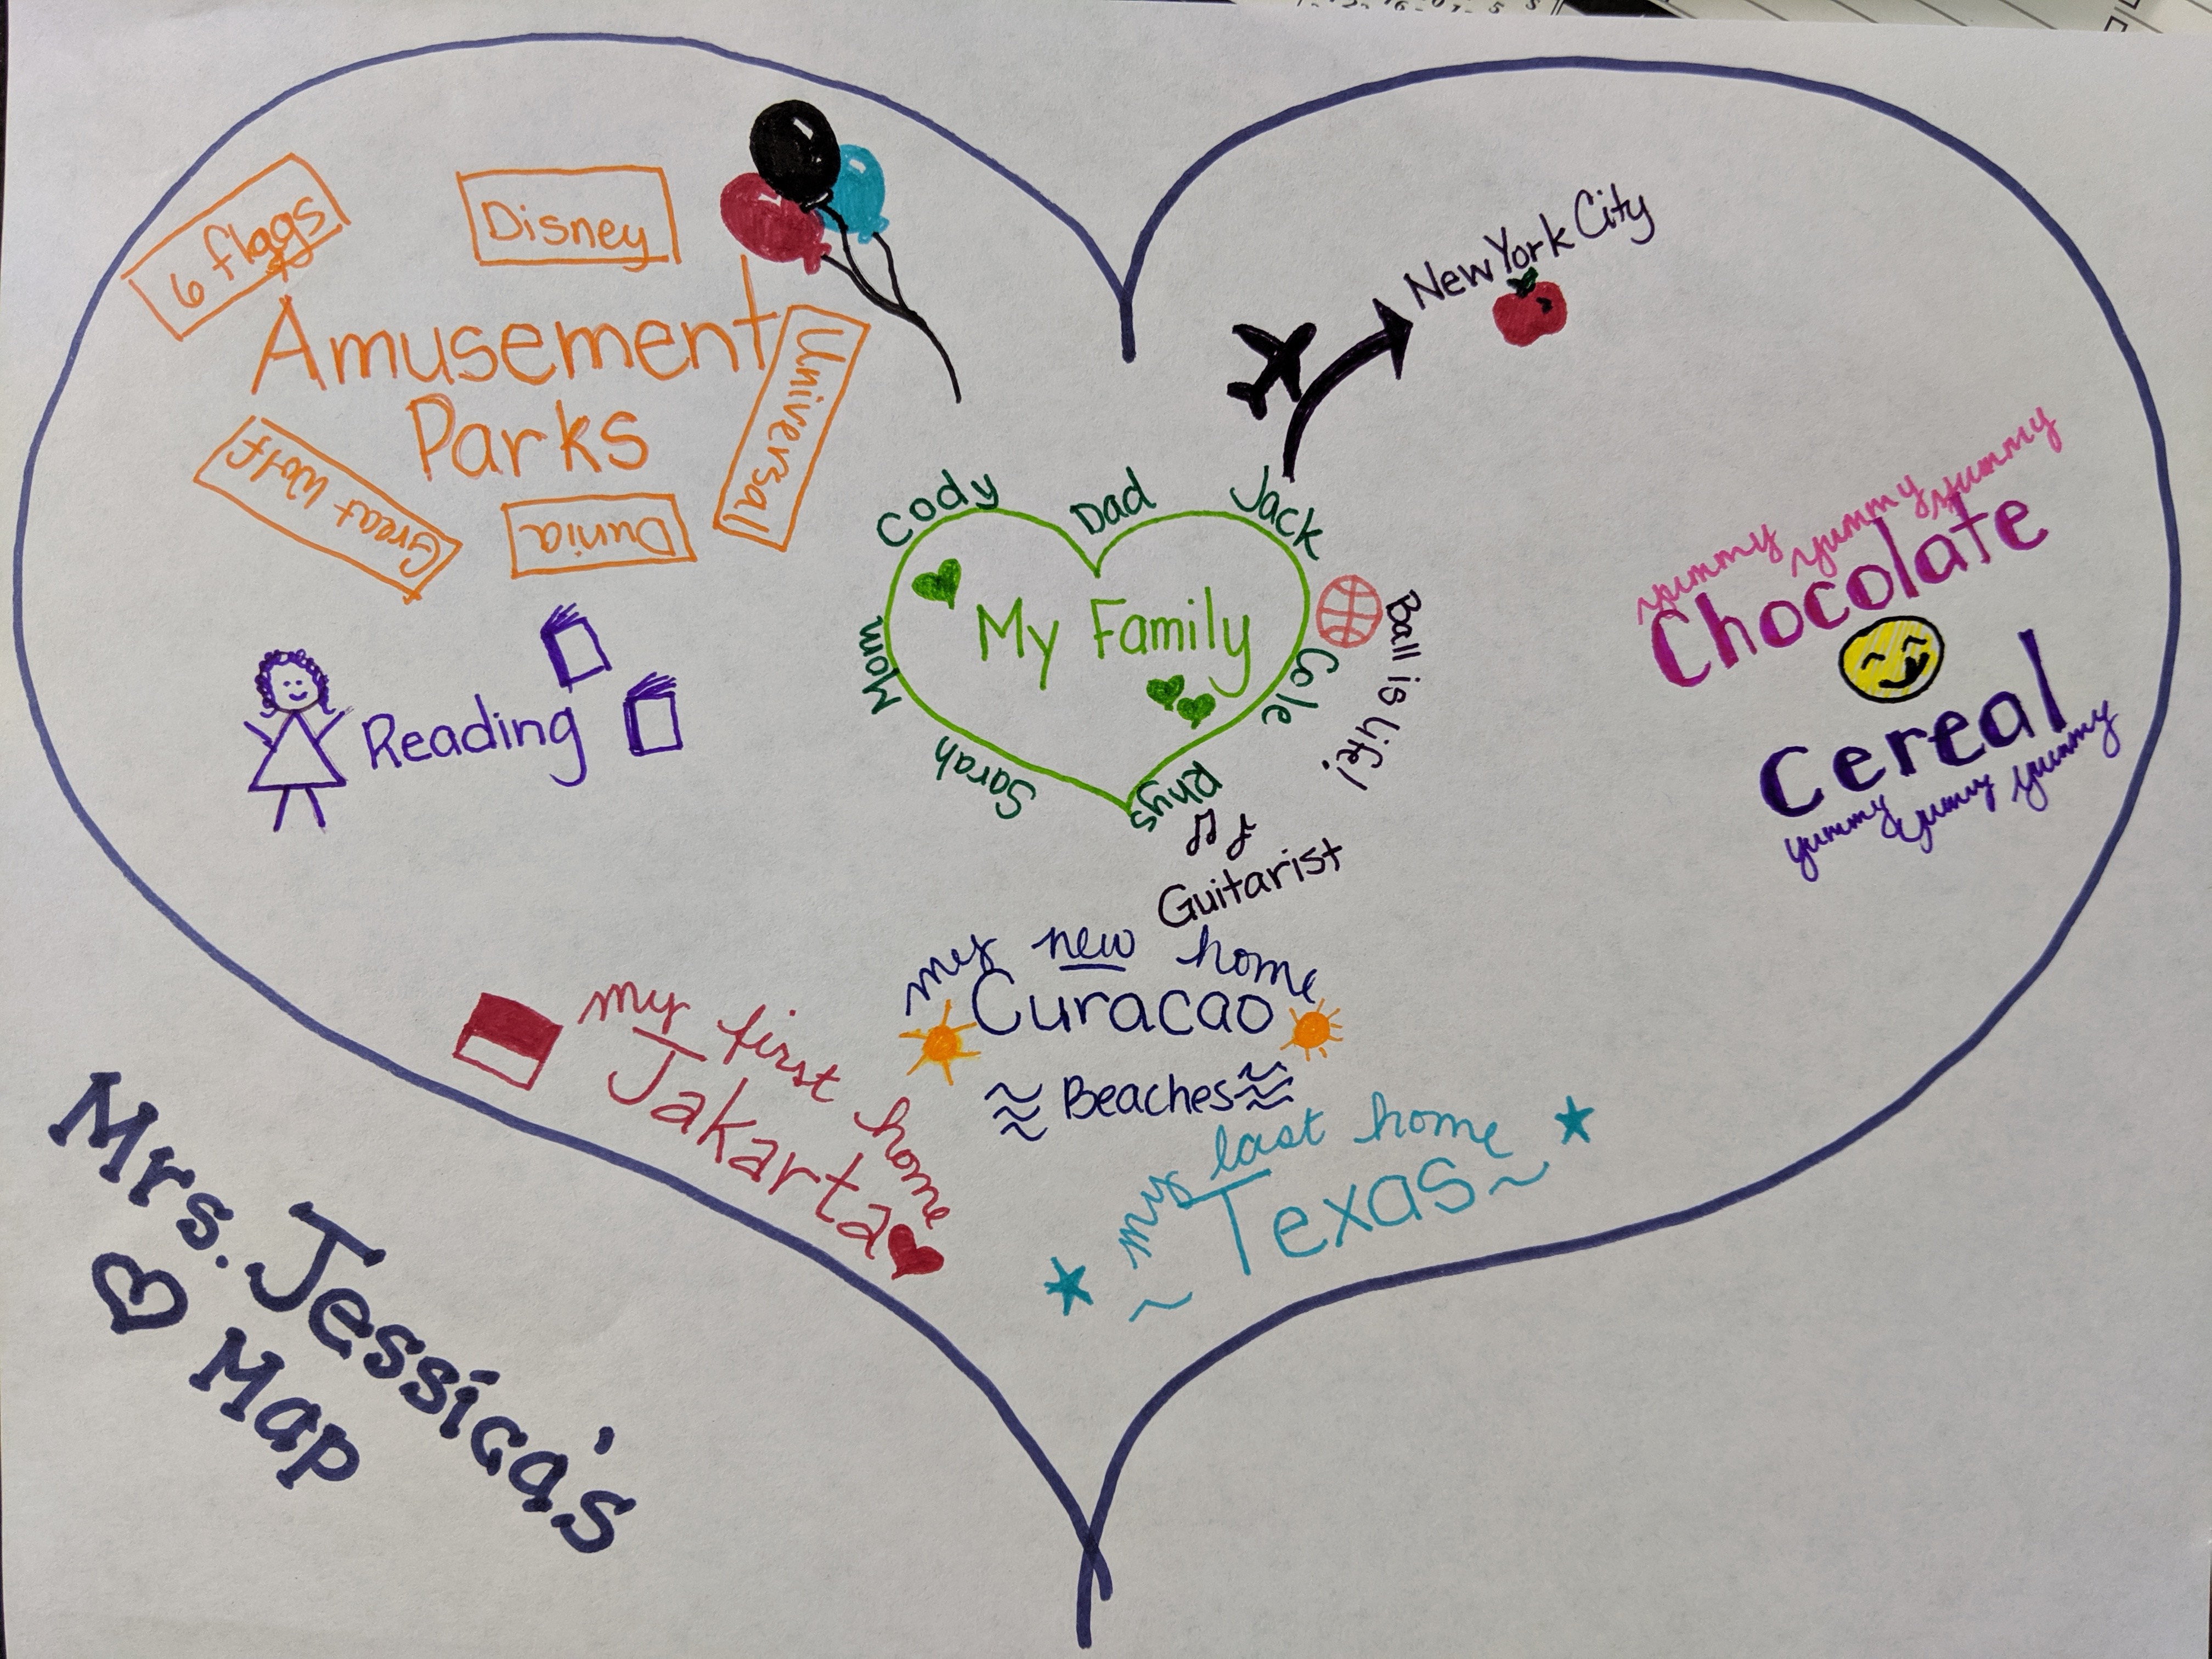 6 flags
Disney
Amusement
Parks
Universal
Great Wolf
Dunia
Reading
New York City
Cody
Dad
Jack
Mom
My Family
Cole
Ball is life!
Sarah
Rhys
Guitarist
yummy yummy yummy
Chocolate
Cereal
yummy yummy yummy
my new home
Curacao
Beaches
my first home
Jakarta
my last home
Texas
Mrs. Jessica's
Map